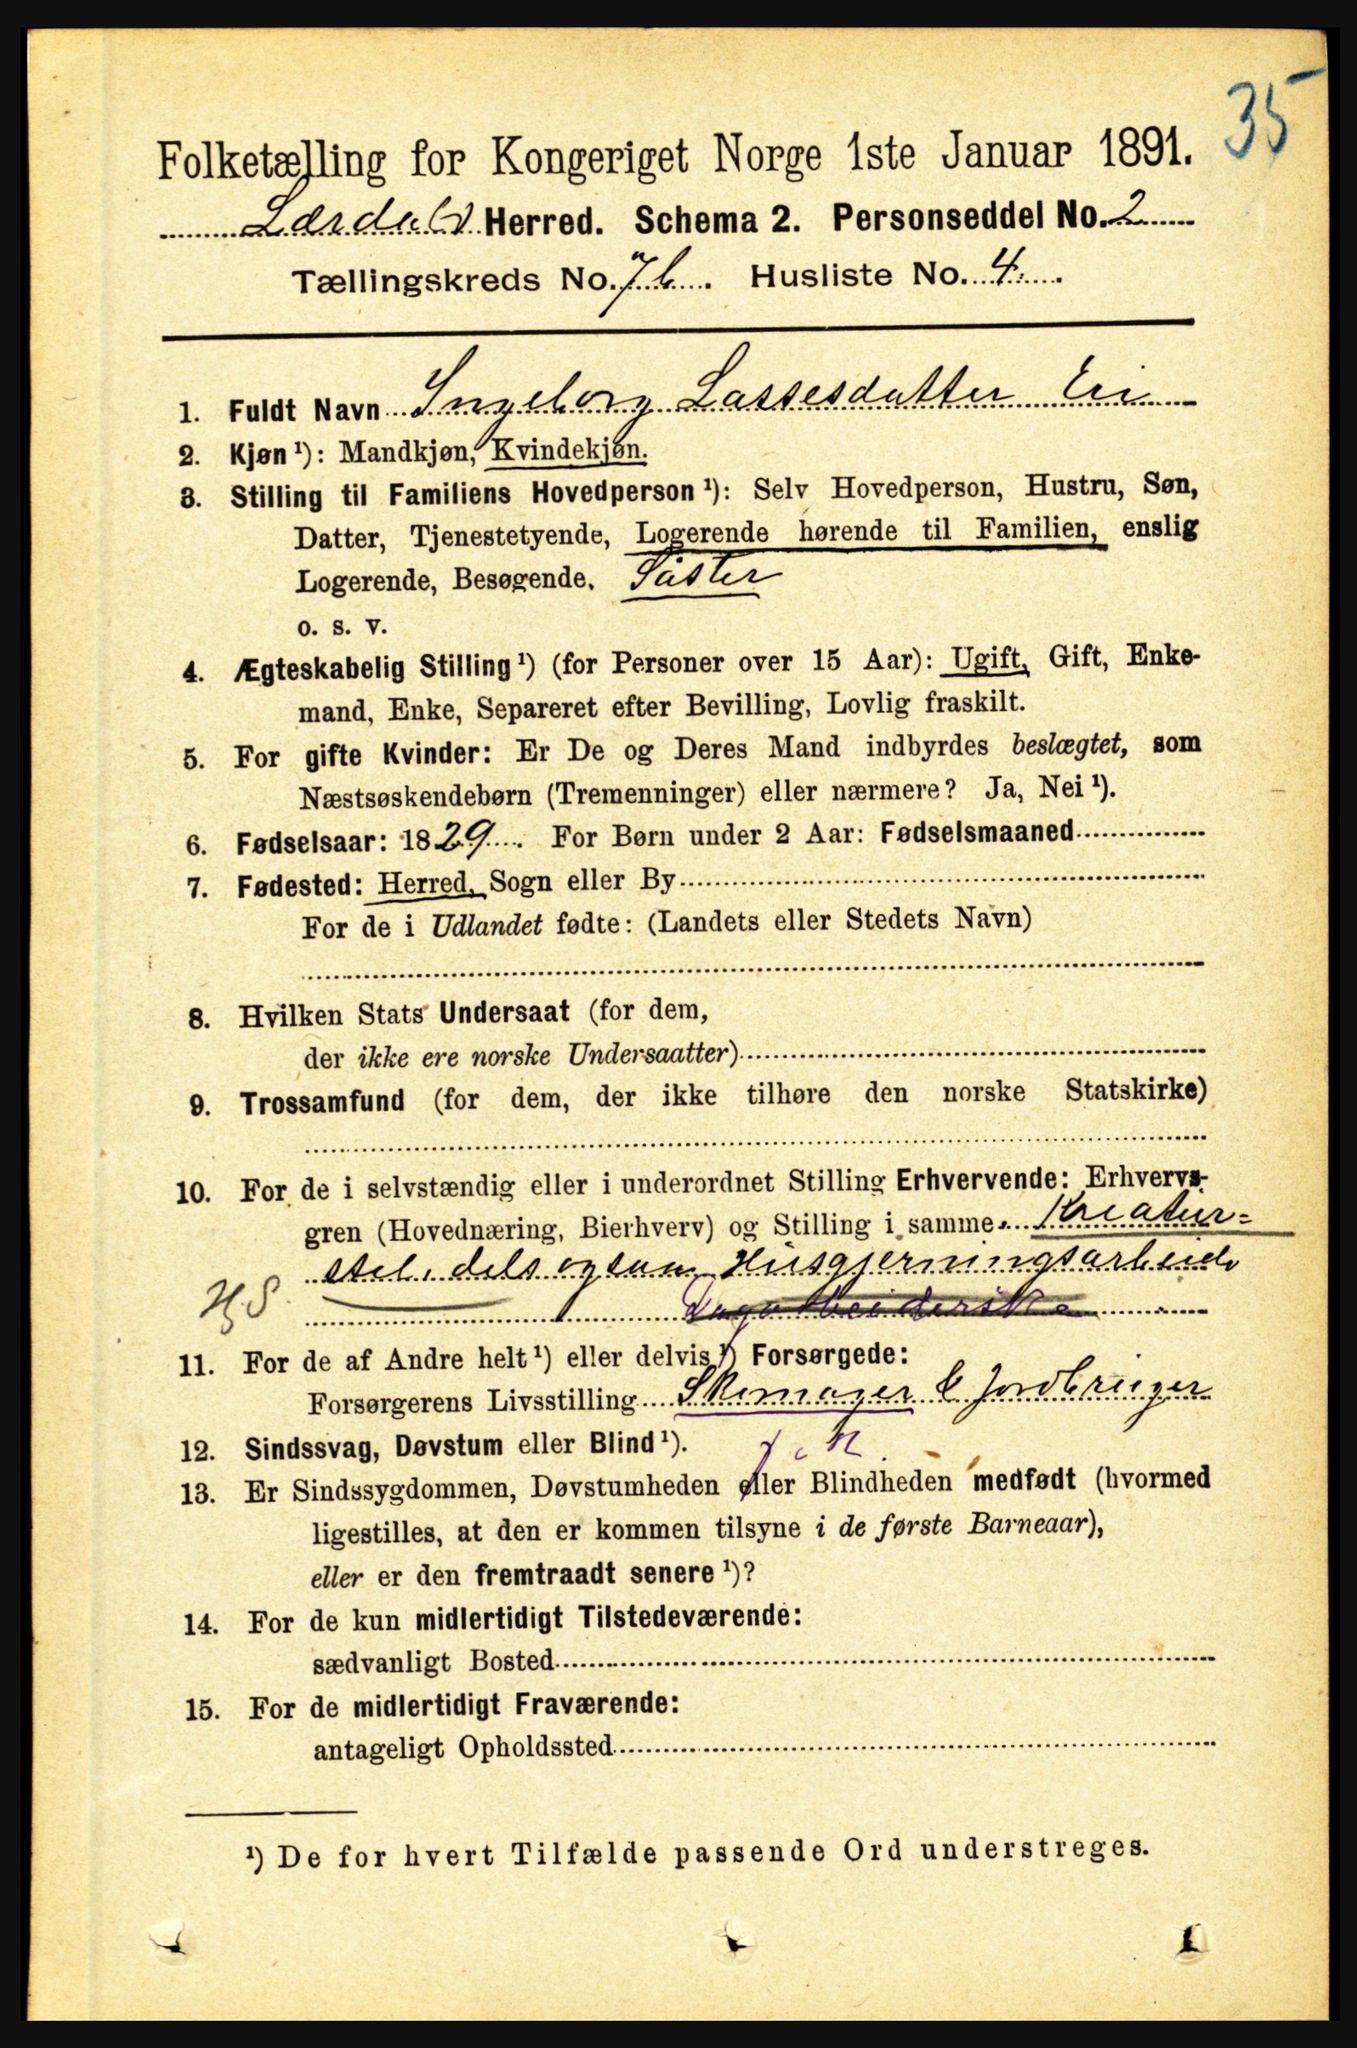 35
Folketælling for Kongeriget Norge 1ste Januar 1891.
Lærdal Herred. Schema 2. Personseddel No. 2
Tællingskreds No. 7b. Husliste No. 4.
1. Fuldt Navn Ingeborg Lassesdatter Eri
2. Kjøn ¹): Mandkjøn, Kvindekjøn.
3. Stilling til Familiens Hovedperson ¹): Selv Hovedperson, Hustru, Søn,
Datter, Tjenestetyende, Logerende hørende til Familien, enslig
Logerende, Besøgende. Søster
o. s. v.
4. Ægteskabelig Stilling ¹) (for Personer over 15 Aar): Ugift, Gift, Enke-
mand, Enke, Separeret efter Bevilling, Lovlig fraskilt.
5. For gifte Kvinder: Er De og Deres Mand indbyrdes beslægtet, som
Næstsøskendebørn (Tremenninger) eller nærmere? Ja, Nei ¹).
6. Fødselsaar: 1829. For Børn under 2 Aar: Fødselsmaaned
7. Fødested: Herred, Sogn eller By
For de i Udlandet fødte: (Landets eller Stedets Navn)
8. Hvilken Stats Undersaat (for dem,
der ikke ere norske Undersaatter)
9. Trossamfund (for dem, der ikke tilhøre den norske Statskirke)
10. For de i selvstændig eller i underordnet Stilling Erhvervende: Erhvervs-
gren (Hovednæring, Bierhverv) og Stilling i samme. Kreatur=
stel, dels ogsaa Husgjerningsarbeide
HS. Dagarbeiderske
11. For de af Andre helt ¹) eller delvis ¹) Forsørgede:
Forsørgerens Livsstilling Skomager & Jordbruger
12. Sindssvag, Døvstum eller Blind ¹).
13. Er Sindssygdommen, Døvstumheden eller Blindheden medfødt (hvormed
ligestilles, at den er kommen tilsyne i de første Barneaar),
eller er den fremtraadt senere ¹)?
14. For de kun midlertidigt Tilstedeværende:
sædvanligt Bosted
15. For de midlertidigt Fraværende:
antageligt Opholdssted
¹) De for hvert Tilfælde passende Ord understreges.